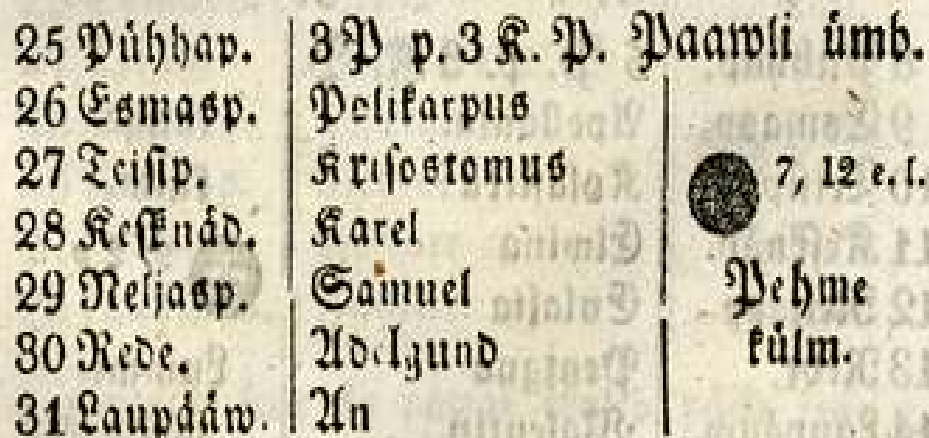 25 Pühhap. 3 P p. 3 K. P. Paawli ümb.
26 Esmasp. Polikarpus
27 Teisip. Krisostomus 7, 12 e. l.
28 Keskнäd. Karel
29 Neljasp. Samuel Pehme
30 Rede. Adelgund külm.
31 Laupääw. An